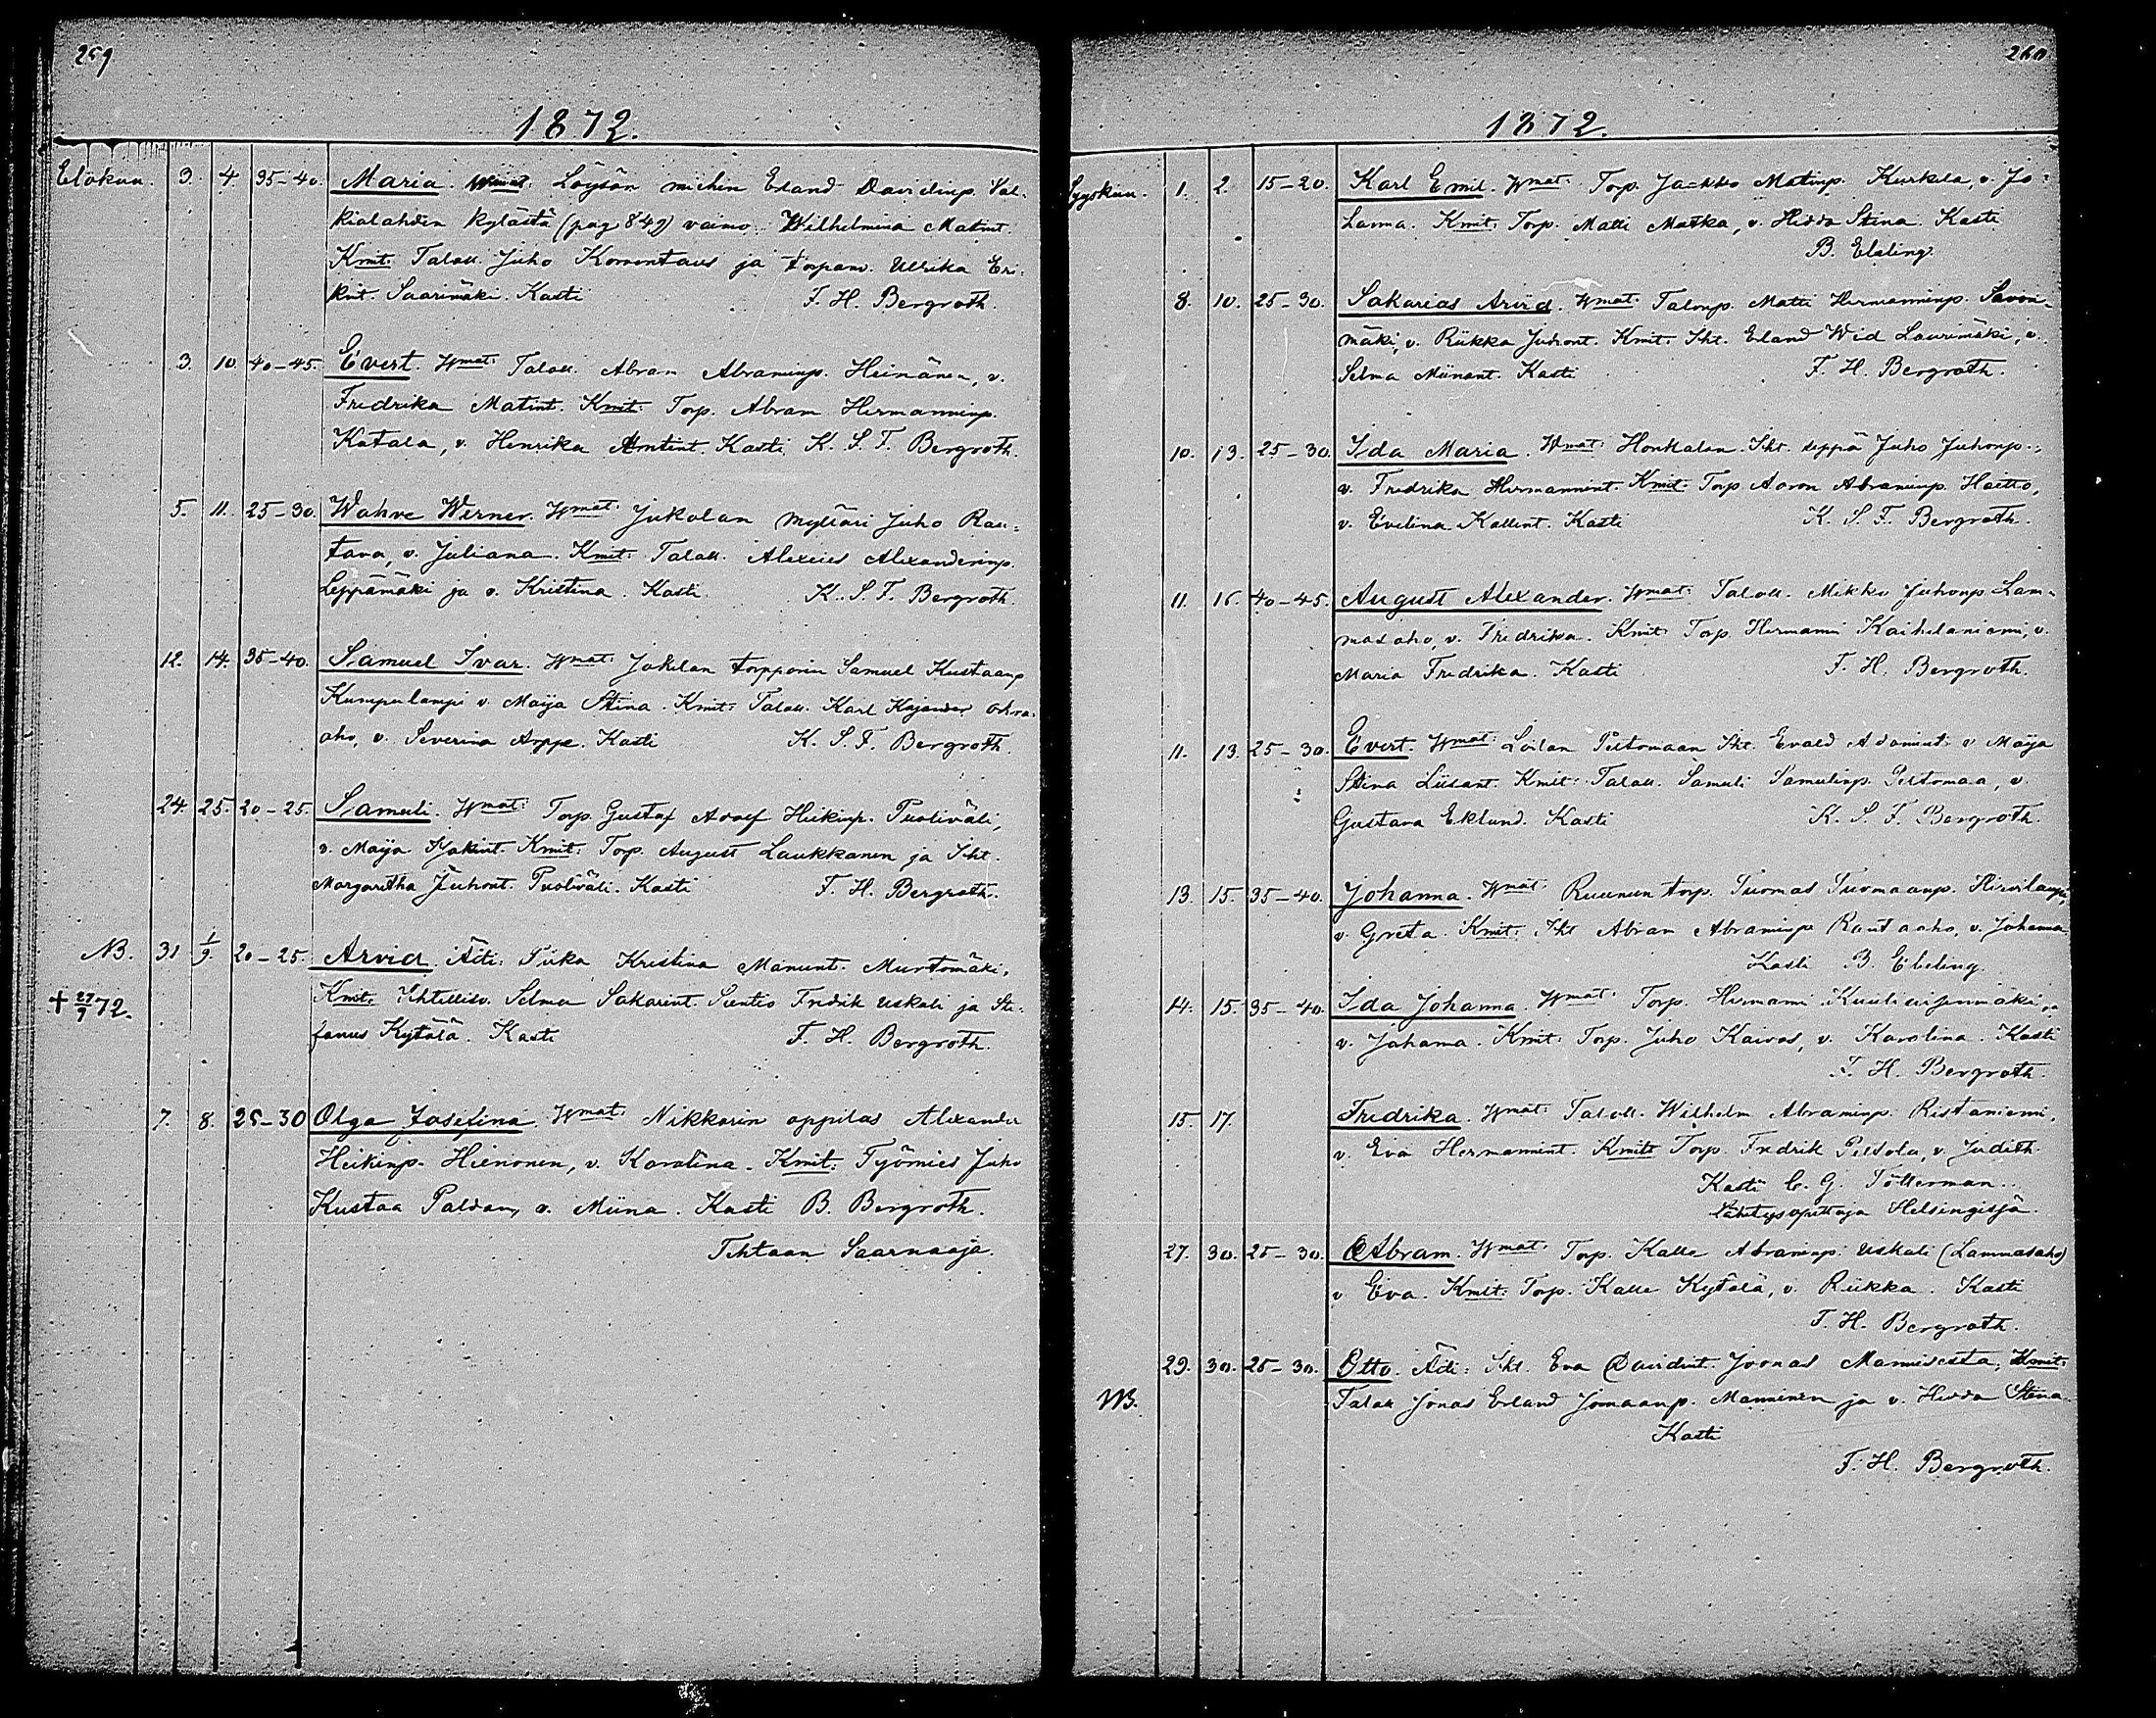 259
1872.
Elokuu. 3. 4. 35-40. Maria. Wmat: Löysön miehen Erland Davidinp. Sal-
kialahden kylästä (pag 849) vaimo Wilhelmina Matint.
Kmit: Talall. Juho Komontaus ja torpanv. Ullrika Eri-
kint. Saarimäki. Kasti F. H. Bergroth.
3. 10. 40-45. Evert. Wmat: Talall. Abram Abraminp. Heinänen, v.
Fredrika Matint. Kmit: Torp. Abram Hermanninp.
Katala, v. Henrika Antint. Kasti K. S. F. Bergroth.
5. 11. 25-30. Wahve Werner. Wmat: Jukolan mylläri Juho Rau-
tava, v. Juliana. Kmit: Talall. Alexius Alexanderinp.
Leppämäki ja v. Kristina. Kasti K. S. F. Bergroth.
12. 14. 35-40. Samuel Ivar. Wmat: Jokelan torpparin Samuel Kustaanp
Kumpulampi v. Maija Stina. Kmit: Talall. Karl Kajander Ohra-
aho, v. Severina Arppe. Kasti K. S. F. Bergroth.
24. 25. 20-25. Samuli. Wmat: Torp. Gustaf Adolf Heikinp. Puoliväli,
v. Maija Jakint. Kmit: Torp. August Laukkanen ja Iht.
Margaretha Juhont. Puoliväli. Kasti F. H. Bergroth.
NB. 31 1/9. 20-25. Arvid. Äiti: Piika Kristina Manunt. Murtomäki,
+ 27/9 72. Kmit: Ihtellisv. Selma Sakarint. Suntio Fredrik Uskali ja Ste-
fanus Kytölä. Kasti F. H. Bergroth.
7. 8. 25-30 Olga Josefina. Wmat: Nikkarin oppilas Alexander
Heikinp. Hienonen, v. Karolina. Kmit: Työmies Juho
Kustaa Paldan, v. Miina. Kasti B. Bergroth.
Tehtaan Saarnaaja.
260
1872.
Syyskuu. 1. 2. 15-20. Karl Emil. Wmat: Torp. Jaakko Matinp. Kurkela, v. Jo-
hanna. Kmit: Torp. Matti Matka, v. Hedda Stina. Kasti
B. Ebeling.
8. 10. 25-30. Sakarias Arvid. Wmat: Talonp. Matti Hermanninp. Savon-
mäki, v. Riikka Juhont. Kmit: Iht. Erland Wid Laurimäki, v.
Selma Miinant. Kasti F. H. Bergroth.
10. 13. 25-30. Ida Maria. Wmat: Honkolan Iht. seppä Juho Juhonp.
v. Fredrika Hermannint. Kmit: Torp Aaron Abraminp. Haitto,
v. Evelina Kallent. Kasti K. S. F. Bergroth.
11. 16. 40-45. August Alexander. Wmat: Talall. Mikko Juhonp. Lam-
masaho, v. Fredrika. Kmit: Torp. Hermanni Kaihilaniemi, v.
Maria Fredrika. Kasti F. H. Bergroth.
11. 13. 25-30. Evert. Wmat: Loilan Peltomaan Iht. Evald Adamint v. Maija
Stina Liisant. Kmit: Talall. Samuli Samulinp. Peltomaa, v.
Gustava Eklund. Kasti K. S. F. Bergroth.
13. 15. 35-40. Johanna. Wmat: Ruunun torp. Tuomas Tuomaanp. Hirvilampi,
v. Greta. Kmit: Iht Abram Abraminp Rautaaho, v. Johanna
Kasti B. Ebeling.
14. 15. 35-40. Ida Johanna. Wmat: Torp. Hermanni
v. Johanna. Kmit: Torp. Juho Kaivos, v. Karolina. Kasti
F. H. Bergroth.
15. 17. Fredrika. Wmat: Talall. Wilhelm Abraminp. Ristaniemi,
v. Eva Hermannint. Kmit: Torp. Fredrik Peltola, v. Judith.
Kasti C. G. Tötterman
Lähetysopettaja Helsingisjä.
27. 30. 25-30. Abram. Wmat: Torp. Kalle Abraminp. Uskali (Lammasaho)
v Eva. Kmit: Torp. Kalle Kytölä, v. Riikka. Kasti
F. H. Bergroth.
29. 30. 25-30. Otto. Äiti: Iht. Eva Davidint. Joonas Mannisesta, Kmit:
NB. Talall Jonas Erland Jonaanp. Manninen ja v. Hedda Stina
Kasti
F. H. Bergroth.